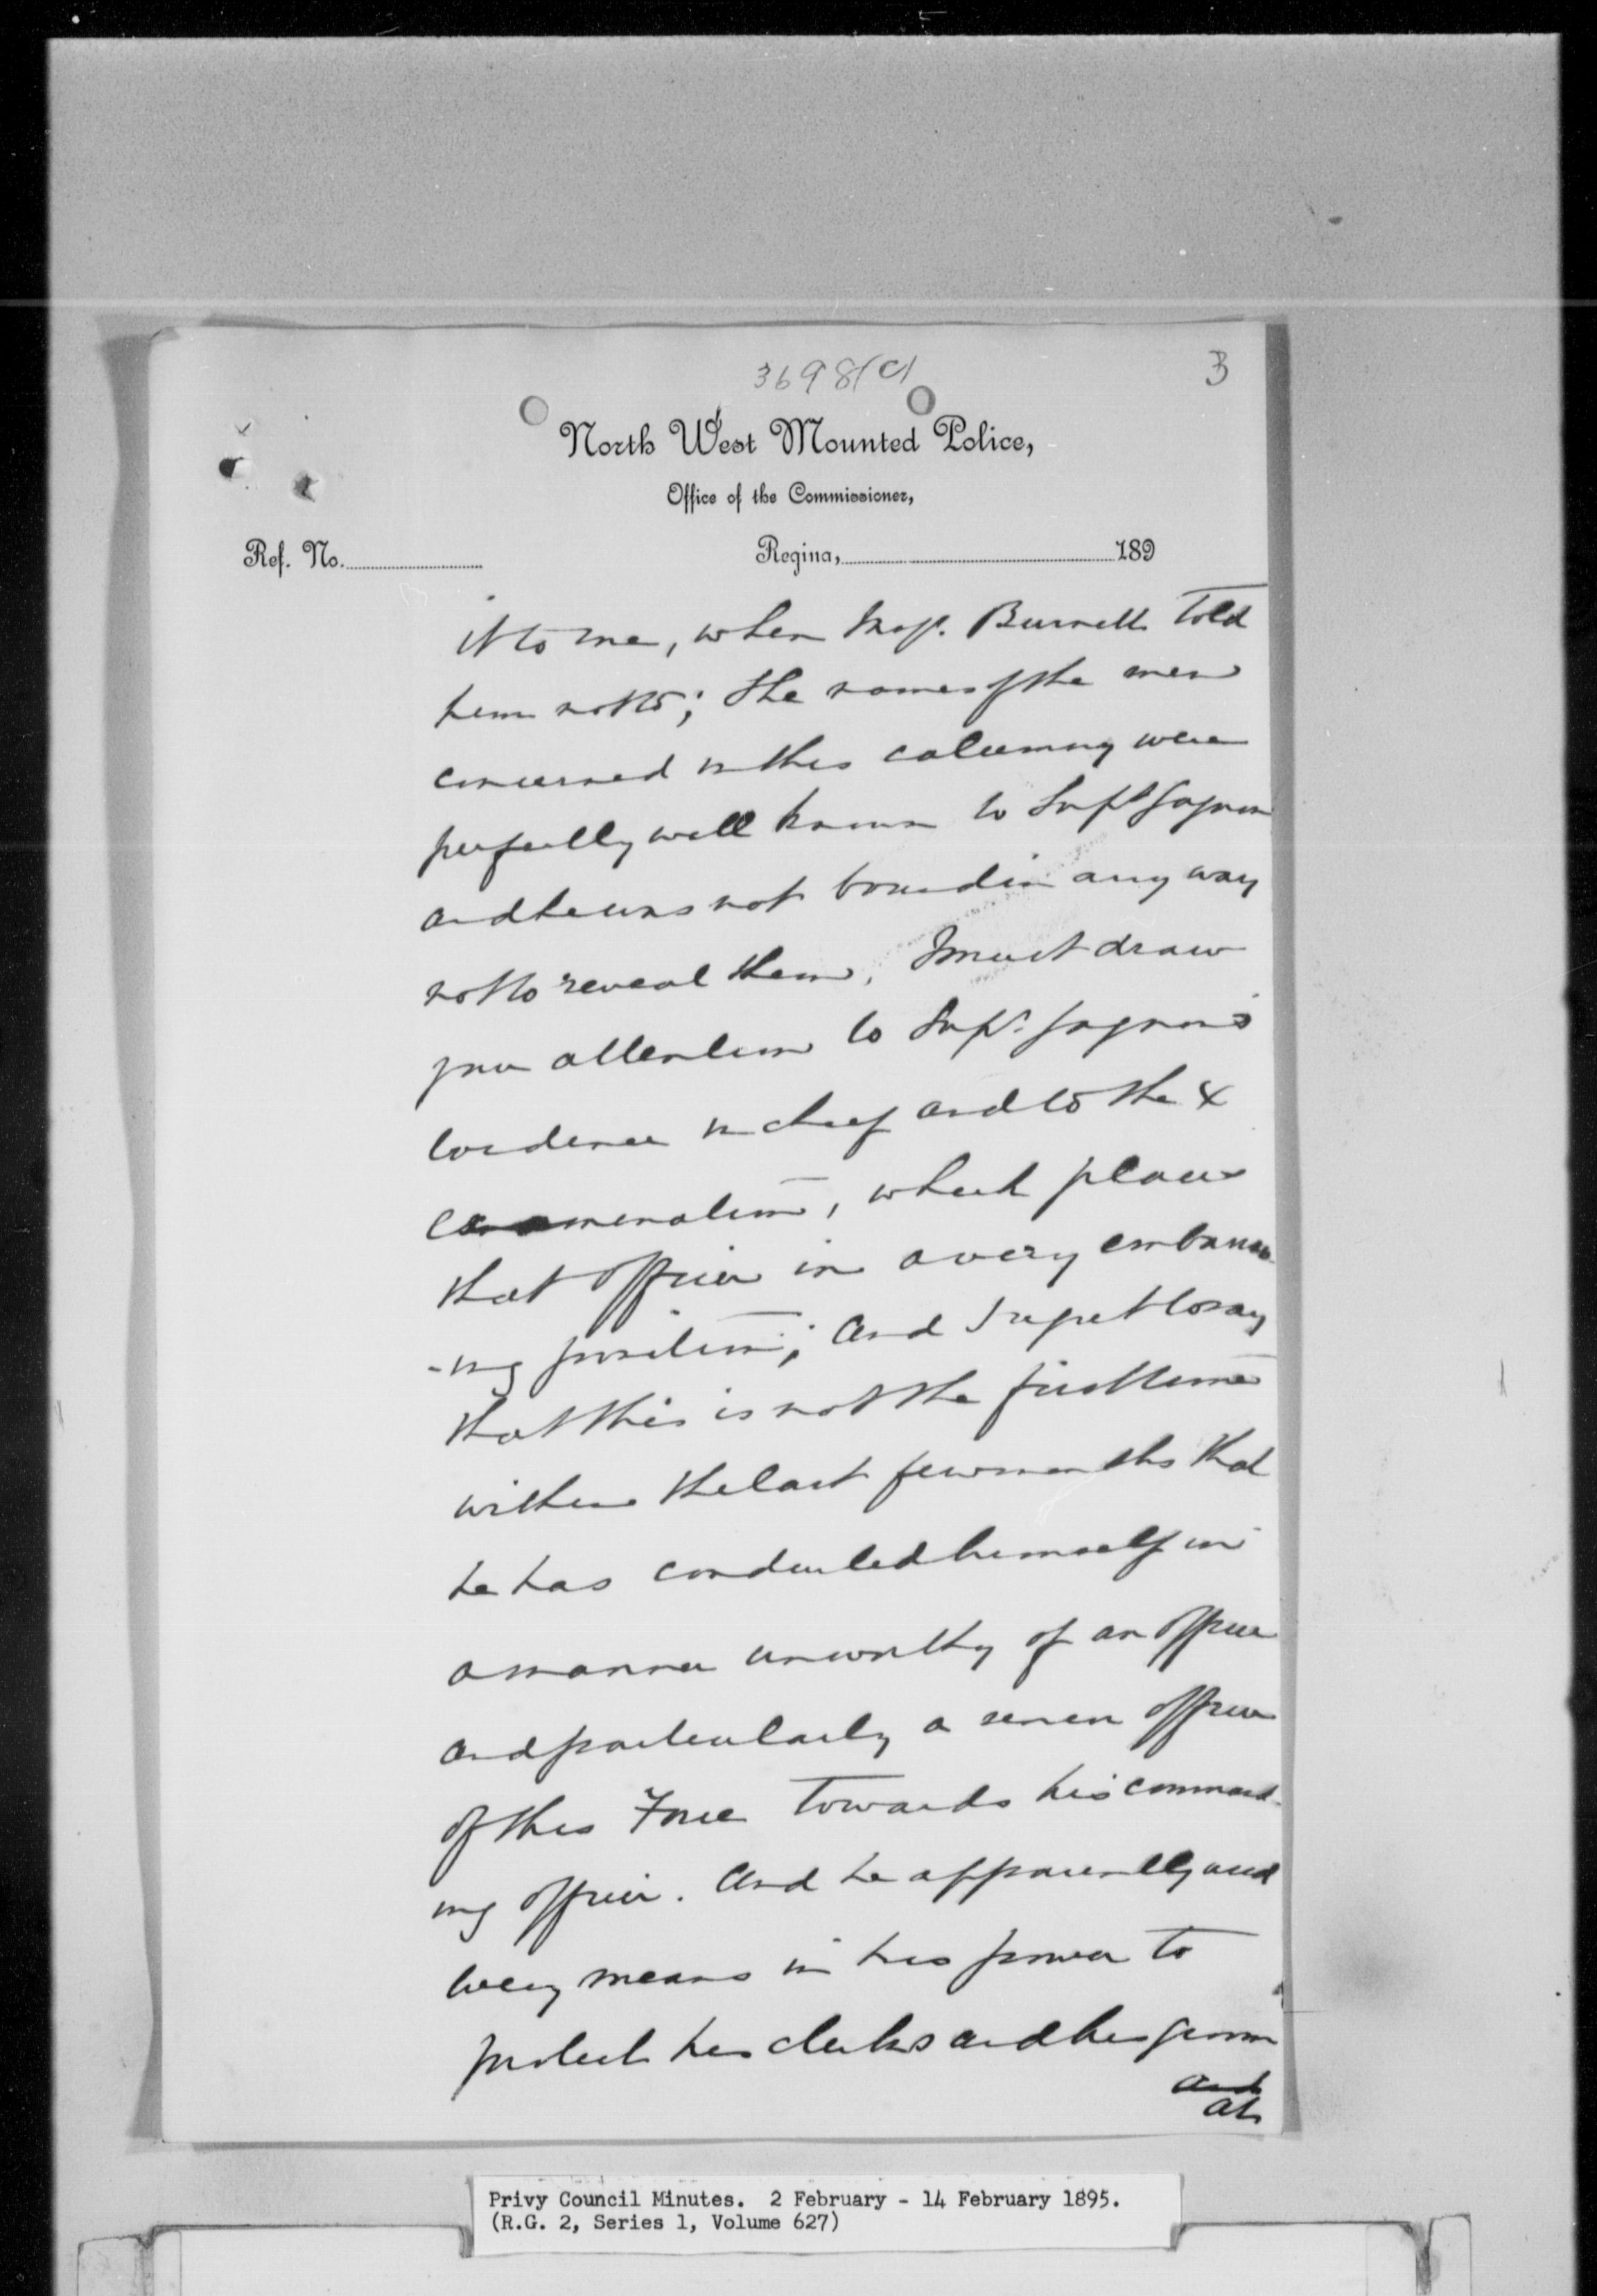 3698(c)
3
North West Mounted Police,
Office of the Commissioner,
Ref. No.
Regina, 189
it to me, when Insp. Burnett told
him not to; the names of the men
concerned in this calumny were
perfectly well known to Supt Gagnon
and he was not bound in any way
not to reveal them. I must draw
your attention to Supt. Gagnon's
evidence in chief and to the X
examination, which places
that officer in a very embarrass
-ing position; and I regret to say
that this is not the first time
within the last few months that
he has conducted himself in
a manner unworthy of an officer
and particularly a senior officer
of this Force towards his command-
ing officer. And he apparently used
every means in his power to
protect his clerks and his groom
and
at
Privy Council Minutes. 2 February - 14 February 1895.
(R.G. 2, Series 1, Volume 627)